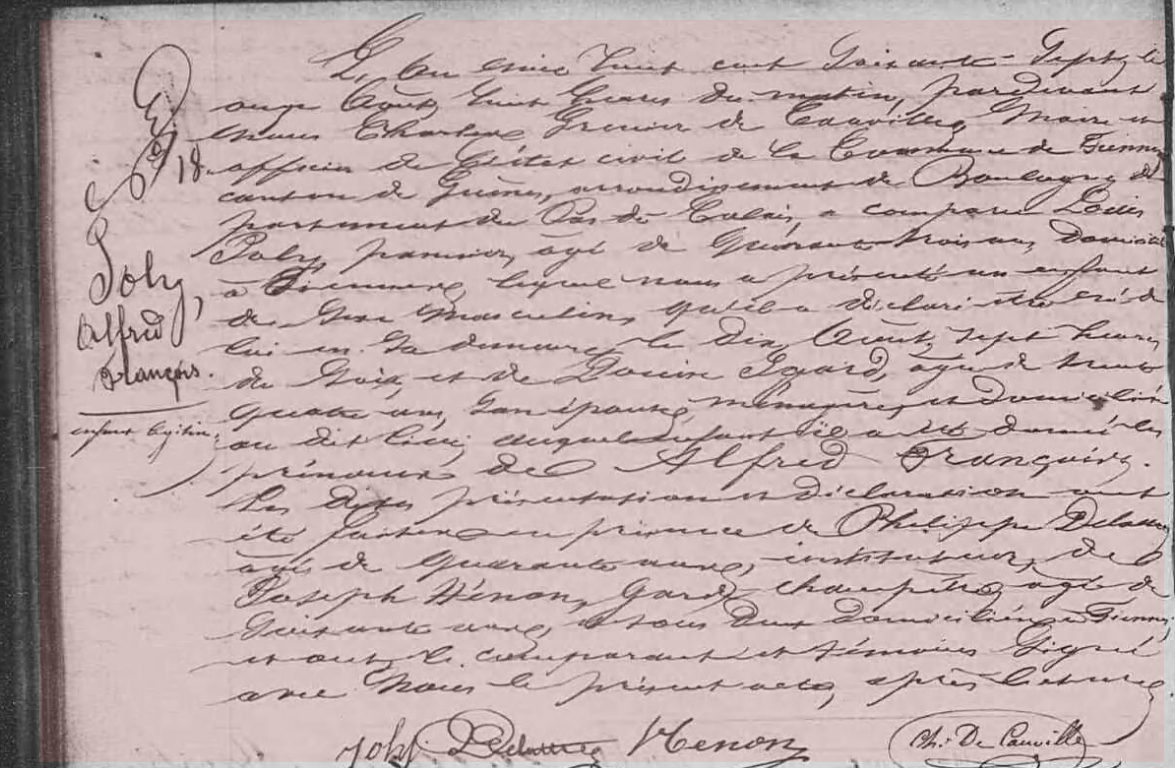 L'An mil huit cent soixante-sept, le
onze Août, huit heures du matin, pardevant
Nous Charles Grenier de Cauville, Maire et
officier de l'état civil de la Commune de Fiennes
18.
canton de Guînes, arrondissement de Boulogne, dé
partement du Pas de Calais, a comparu Louis
Joly, âgé de quarante trois ans, domicilié
à Fiennes, lequel nous a présenté un enfant
de sexe Masculin, qu'il a déclaré être né de
lui en sa demeure le dix Août, sept heures
du soir, et de Louise Evrard, âgée de trente
quatre ans, son épouse, ménagère, et domiciliée
au dit lieu, auquel enfant il a dit donner les
prénoms de Alfred François.
Les dites présentation et déclaration ont
été faites en présence de Philippe Delattre
âgé de quarante ans, instituteur, de
Joseph Hénon, Garde champêtre, âgé de
soixante ans, tous deux domiciliés à Fiennes,
et ont le comparant et témoins signé
avec Nous le présent acte, après lecture
Joly,
Alfred
François.
enfant légitime
Joly Delattre Henon Ch. De Cauville